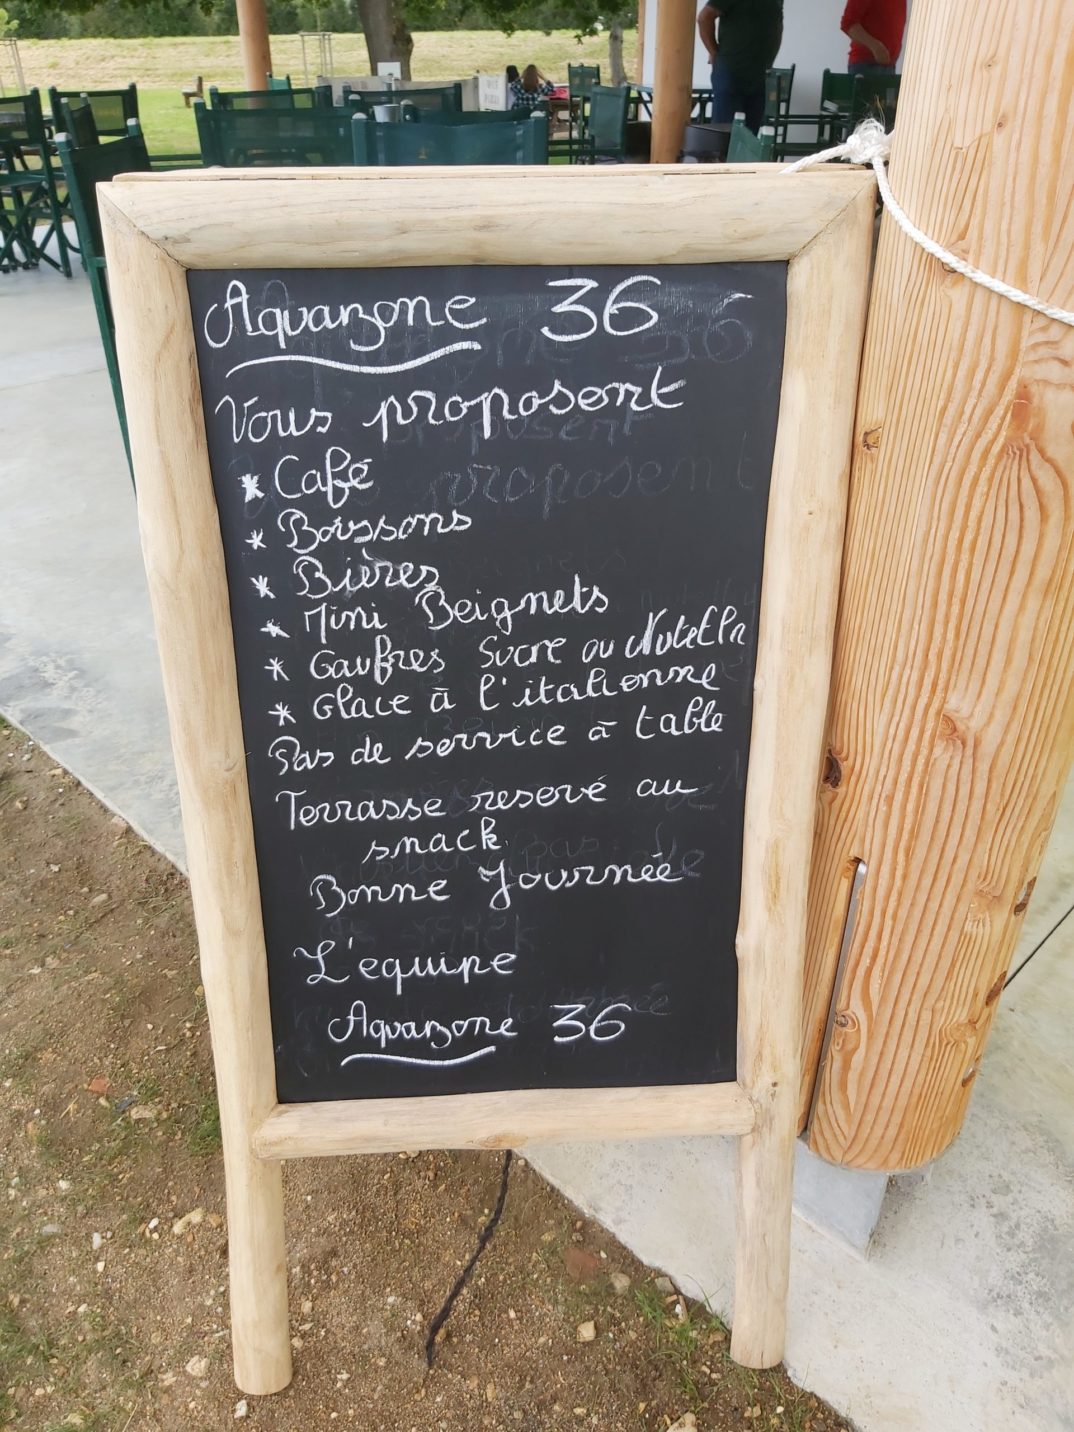 Aquazone 36
Vous proposent
* Café
* Boissons
* Bières
* Mini Beignets
* Gaufres Sucre ou Nutella
* Glace à l'italienne
Pas de service à table
Terrasse reservé au
snack.
Bonne Journée
L'equipe
Aquazone 36